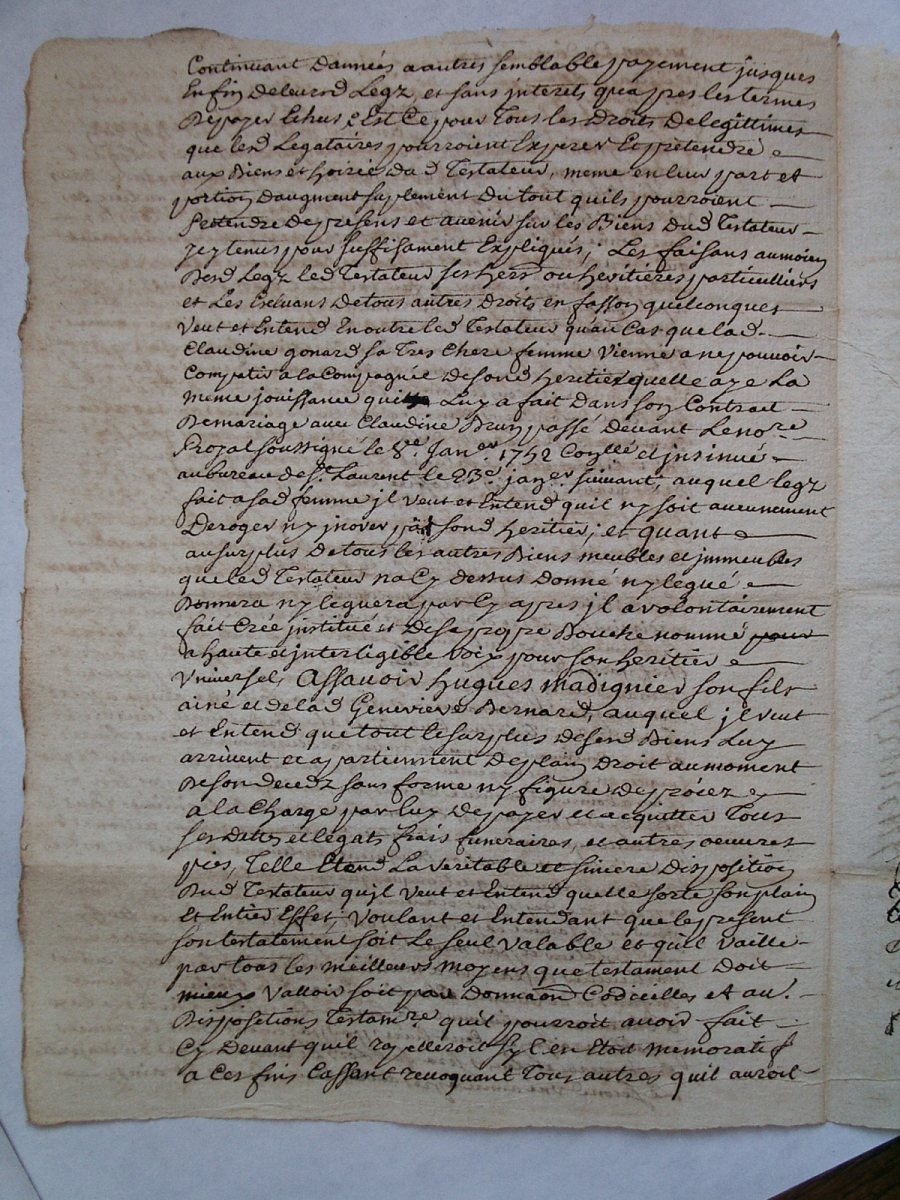 Continuant dannées a autres semblable payement jusques
En fin de leursd Legz, et sans interets qu'apres les termes
De payer Echus, Est Ce pour Tous les Droits De legittimes
que lesd Legataires pourroient Experer Et pretendre
aux Biens et hoirie Dud Testateur, meme en leur part et
portion daugment suplement Du tout quils pourroient
Pretendre De presens et avenir sur les Biens Dud Testateur
jcy tenus pour suffisament Expliqués, Les faisans aumoien
Desd Legz led Testateur ses hers ou heritieres particulliers
et Les Excluans De tous autres Droits en fasson quelconques
Veut et Entend En outre led Testateur quau Cas que lad
Claudine gonard sa Tres Chere femme Vienne a ne pouvoir
Compatir a la Compagnée De sond heritier quelle aye La
meme jouissance qui Luy a fait Dans son Contract
De mariage avec Claudine Brun passé Devant Le nore
Royal soussigné le 8e Janer 1752 Conllé et jnsinué
au bureau de St Laurent le 23e janer suivant, auquel legz
fait a sad femme jl Veut et Entend quil ny soit aucunement
Deroger ny jnover par sond heritier, et quant a
au surplus De tous les autres Biens meubles et jmmeubles
que led Testateur na Cy dessus donné ny legué
Donnera ny leguera par Cy apres jl a volontairement
fait Créé jnstitué et De sa propre Bouche nommé pour
a haute et jnterligible Voix pour son heritier
Vniversel, Assavoir Hugues madignier son fils
ainé et de lad Genevieve Bernard, auquel jl veut
et Entend que tout le surplus De sesd Biens Luy
arrivent et apartiennent De plain Droit au moment
De son decedz sans forme ny figure De procez
a la Charge par luy De payer et acquitter Tous
ses dettes et legats frais funeraires, et autres oeuvres
pies, Telle Etend La veritable et sincere Disposition
Dud Testateur quil Veut et Entend quelle sorte son plain
Et Entier Effet, Voulant et Entendant que le present
son testatement soit Le seul Valable et quil Vaille
par tous les meilleurs moyens que testament Doit
mieux Valloir soit par Donnaon Codicilles et au.
Dispositions Testamre quil pourroit avoir fait
Cy Devant quil rapelleroit syl en Etoit memoratif
a Ces fins Cassant revoquant Tous autres quil auroit